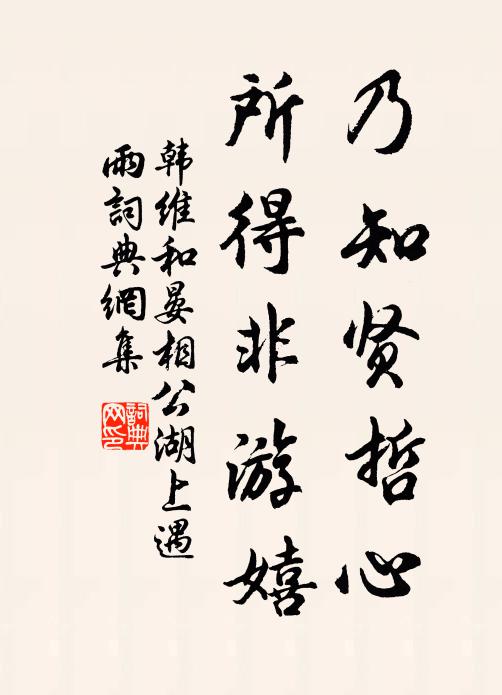 乃知贤哲心
所得非游嬉
韩维和晏相公湖上遇
雨詞典網集
詞典
网印